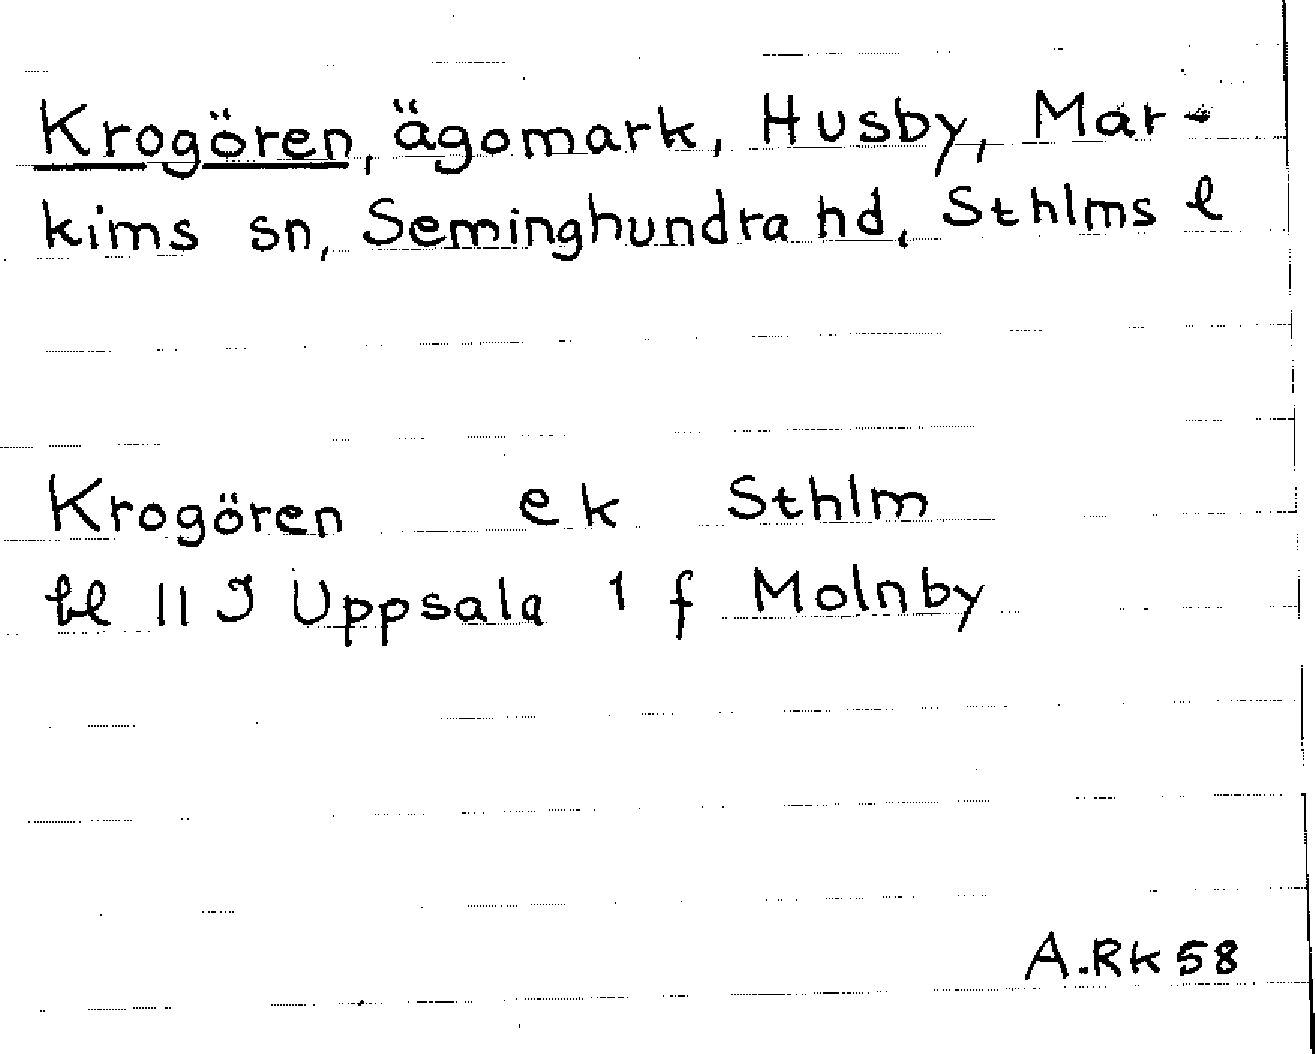 Krogören, ägomark, Husby, Mar-
kims sn, Seminghundra hd, Sthlms l
Krogören ek Sthlm
bl 11 J Uppsala 1 f Molnby
A.Rk 58